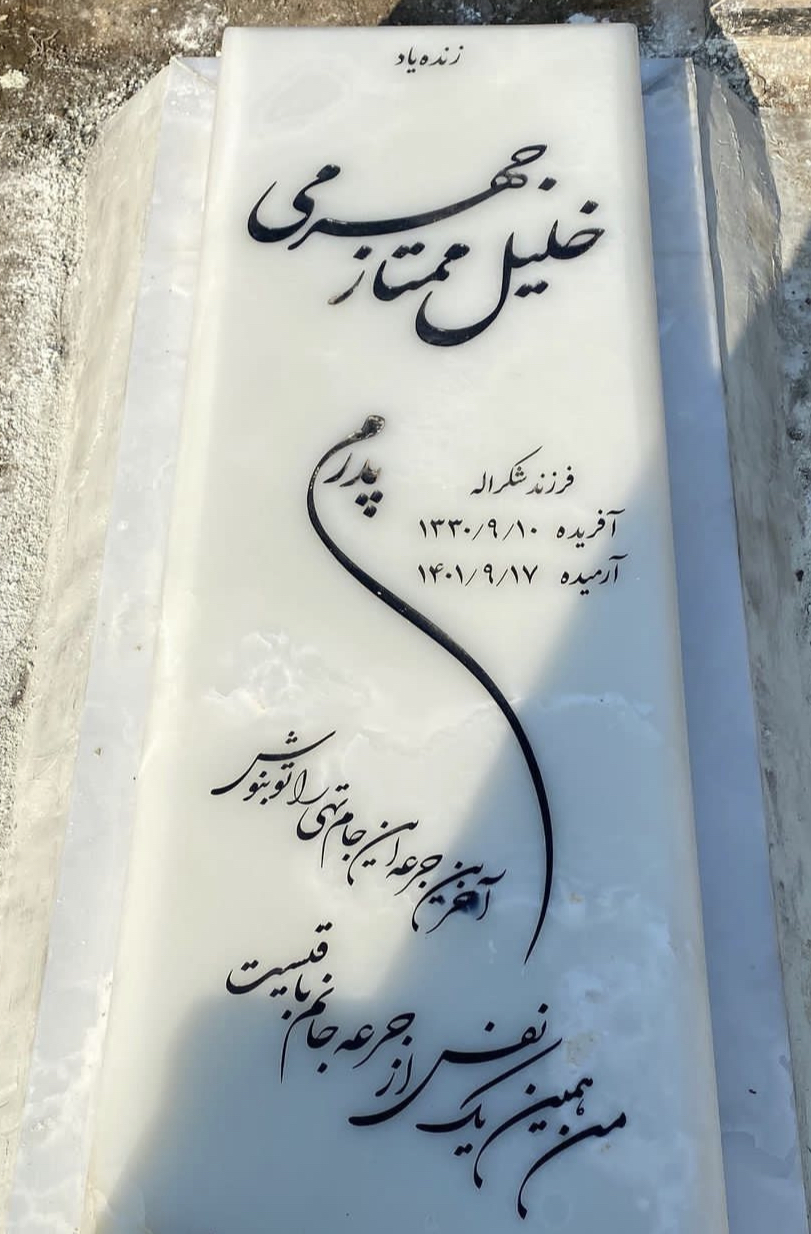 زنده یاد
خلیل ممتاز
جهرمی
پدرم
فرزند شکراله
آفریده ۱۳۳۰/۹/۱۰
آرمیده ۱۴۰۱/۹/۱۷
آخرین جرعه این جام تهی را تو بنوش
من همین یک نفس از جرعه جانم باقیست